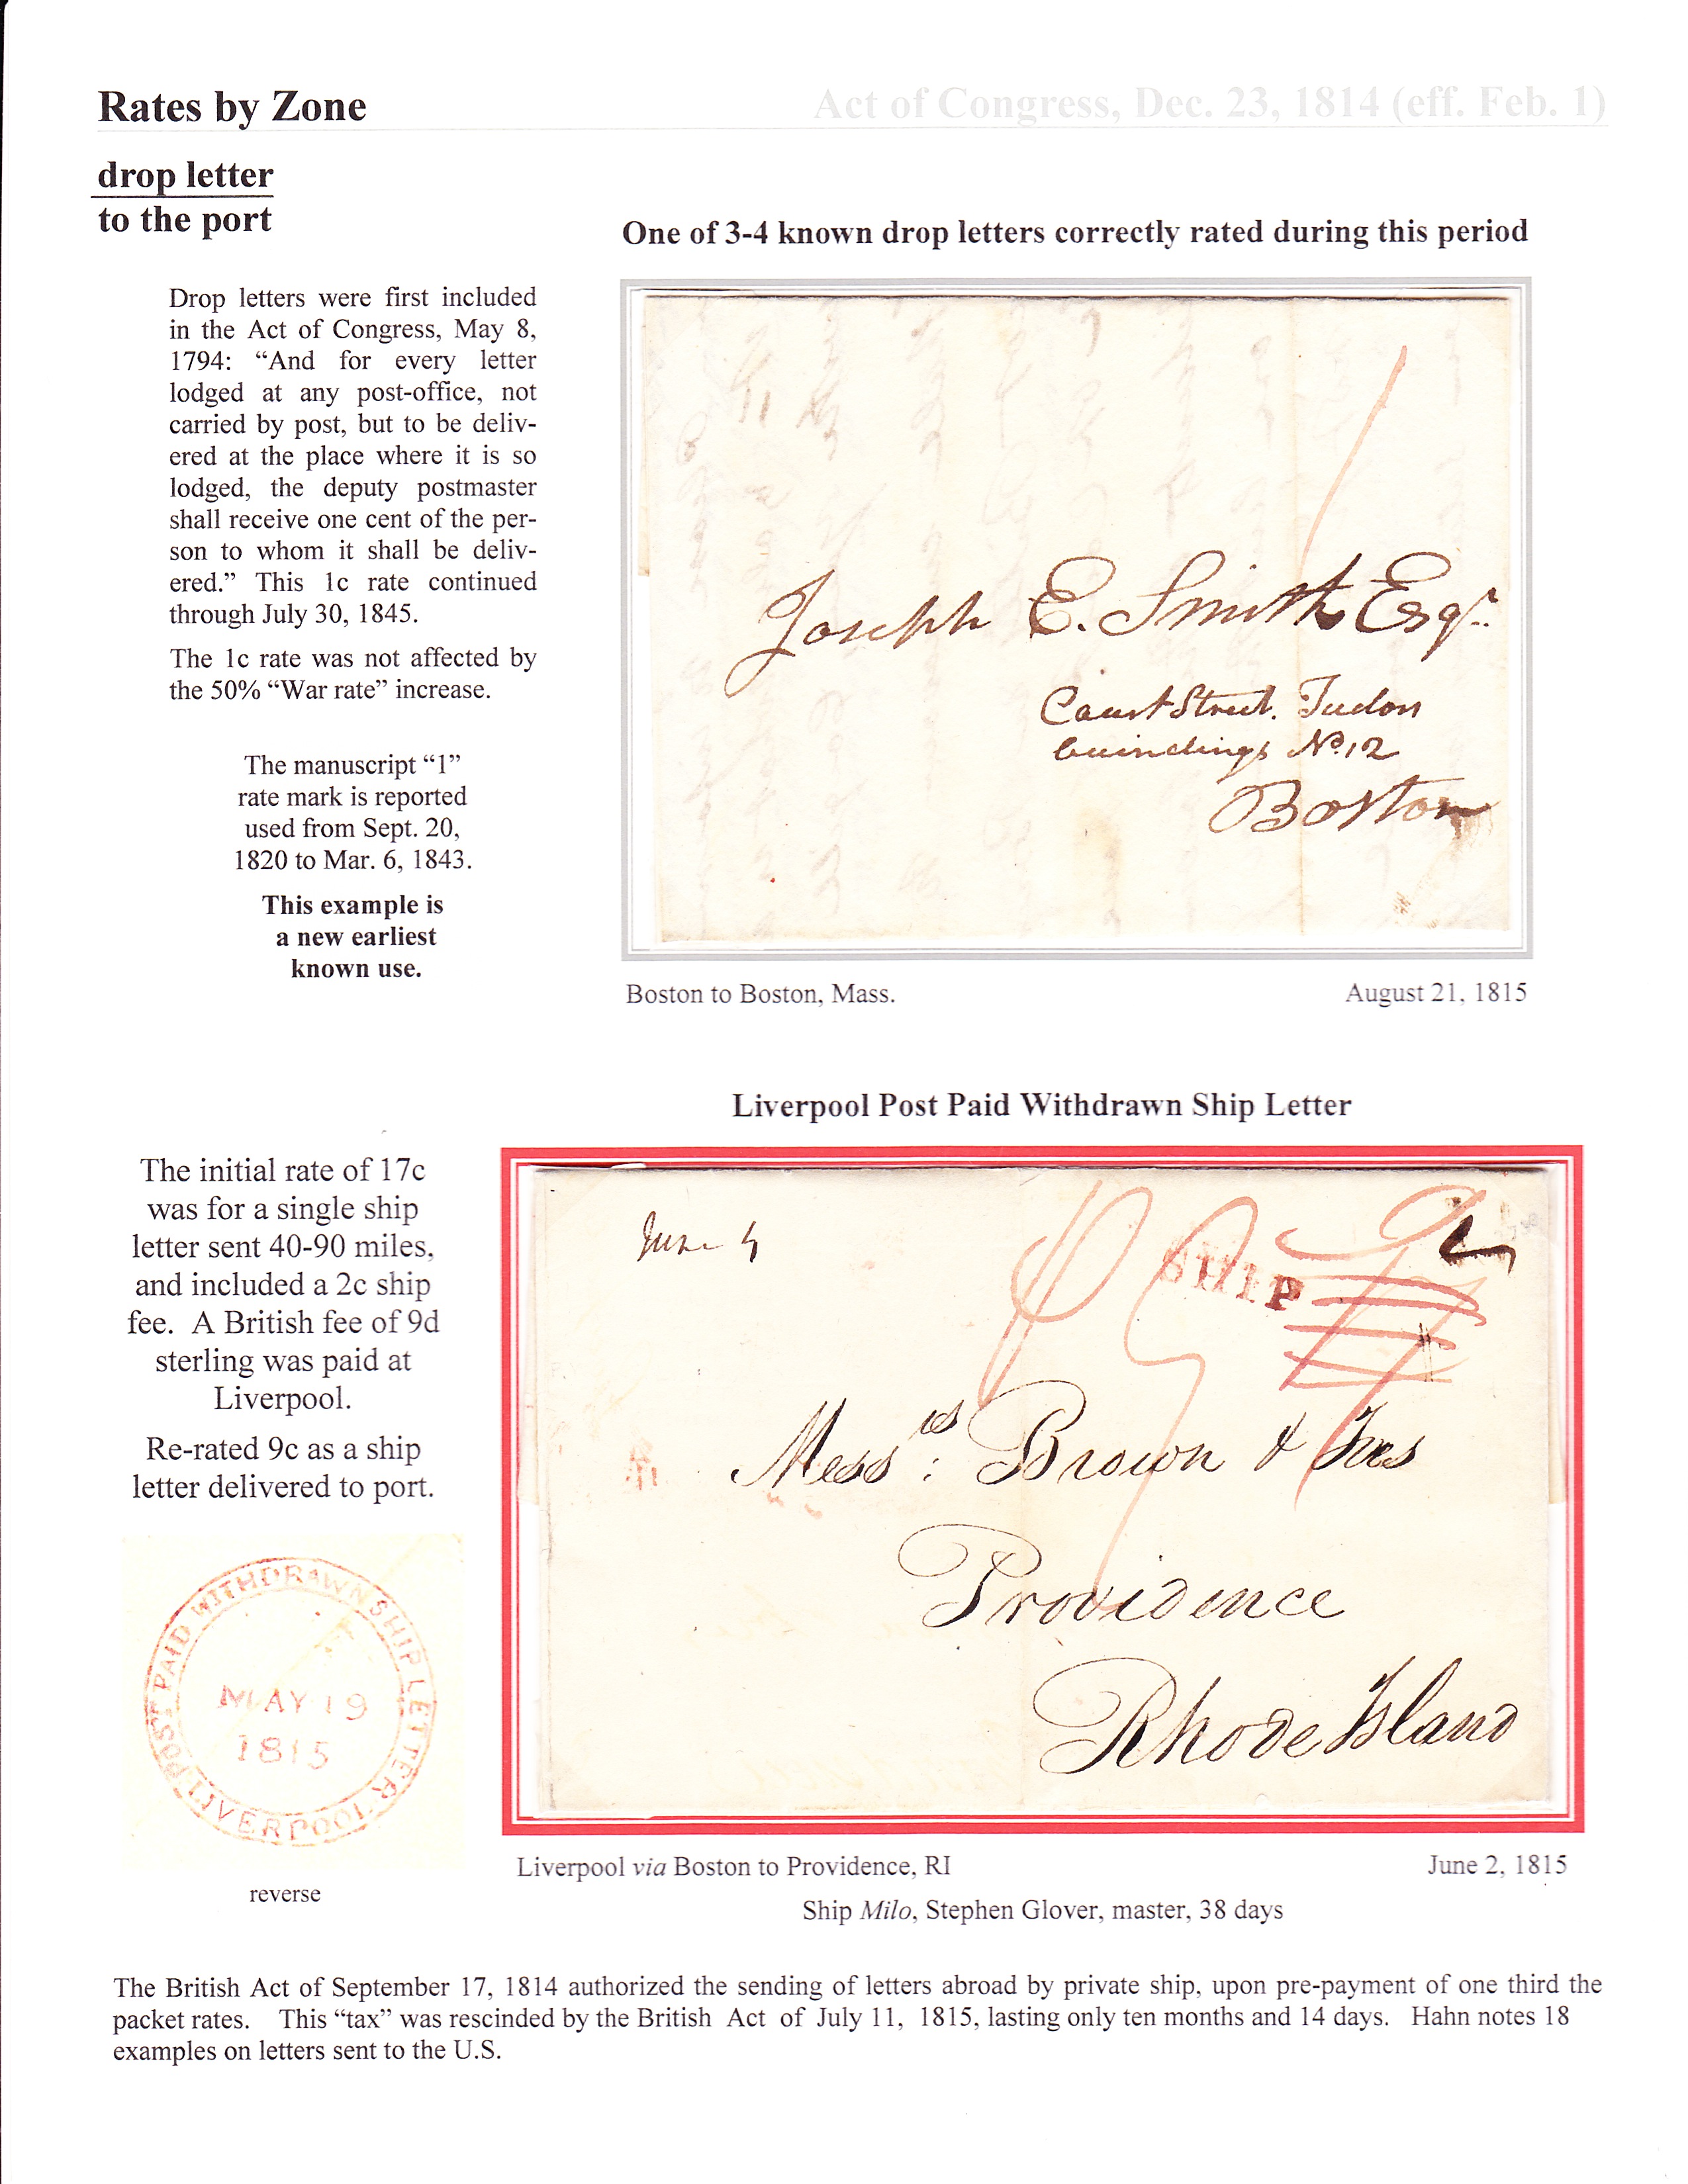 Rates by Zone
Act of Congress, Dec. 23, 1814 (eff. Feb. 1)
drop letter
to the port
One of 3-4 known drop letters correctly rated during this period
Drop letters were first included
in the Act of Congress, May 8,
1794: “And for every letter
lodged at any post-office, not
carried by post, but to be deliv-
ered at the place where it is so
lodged, the deputy postmaster
shall receive one cent of the per-
son to whom it shall be deliv-
ered.” This 1c rate continued
through July 30, 1845.
The 1c rate was not affected by
the 50% “War rate” increase.
The manuscript “1”
rate mark is reported
used from Sept. 20,
1820 to Mar. 6, 1843.
This example is
a new earliest
known use.
1
Joseph E. Smith Esqr.
Court Street. Tudon
buindings No. 12
Boston
Boston to Boston, Mass.
August 21, 1815
Liverpool Post Paid Withdrawn Ship Letter
The initial rate of 17c
was for a single ship
letter sent 40-90 miles,
and included a 2c ship
fee. A British fee of 9d
sterling was paid at
Liverpool.
Re-rated 9c as a ship
letter delivered to port.
June 4
SHIP
Mess rs : Brown & Ives
Providence
Rhode Island
POST PAID WITHDRAWN SHIP LETTER
MAY 19
1815
LIVERPOOL
reverse
Liverpool via Boston to Providence, RI
June 2, 1815
Ship Milo, Stephen Glover, master, 38 days
The British Act of September 17, 1814 authorized the sending of letters abroad by private ship, upon pre-payment of one third the
packet rates. This “tax” was rescinded by the British Act of July 11, 1815, lasting only ten months and 14 days. Hahn notes 18
examples on letters sent to the U.S.